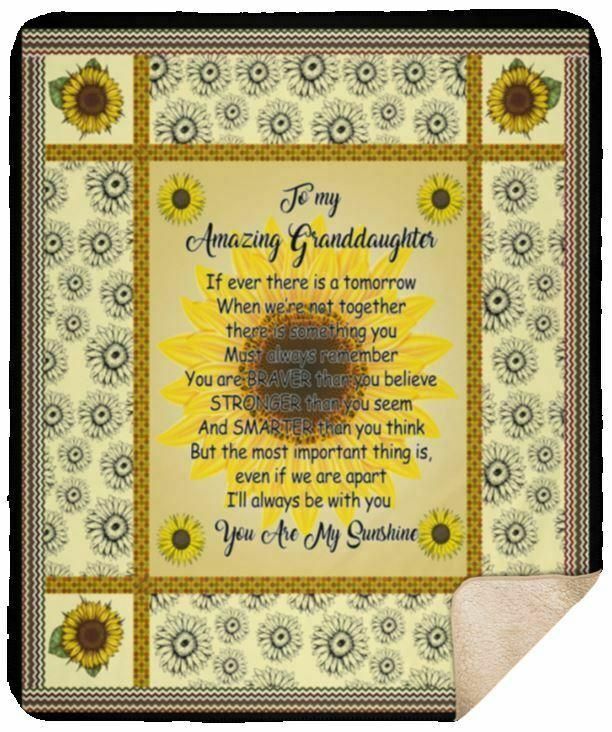 To my
Amazing Granddaughter
If ever there is a tomorrow
When we're not together
there is something you
Must always remember
You are BRAVER than you believe
STRONGER than you seem
And SMARTER than you think
But the most important thing is,
even if we are apart
I'll always be with you
You Are My Sunshine